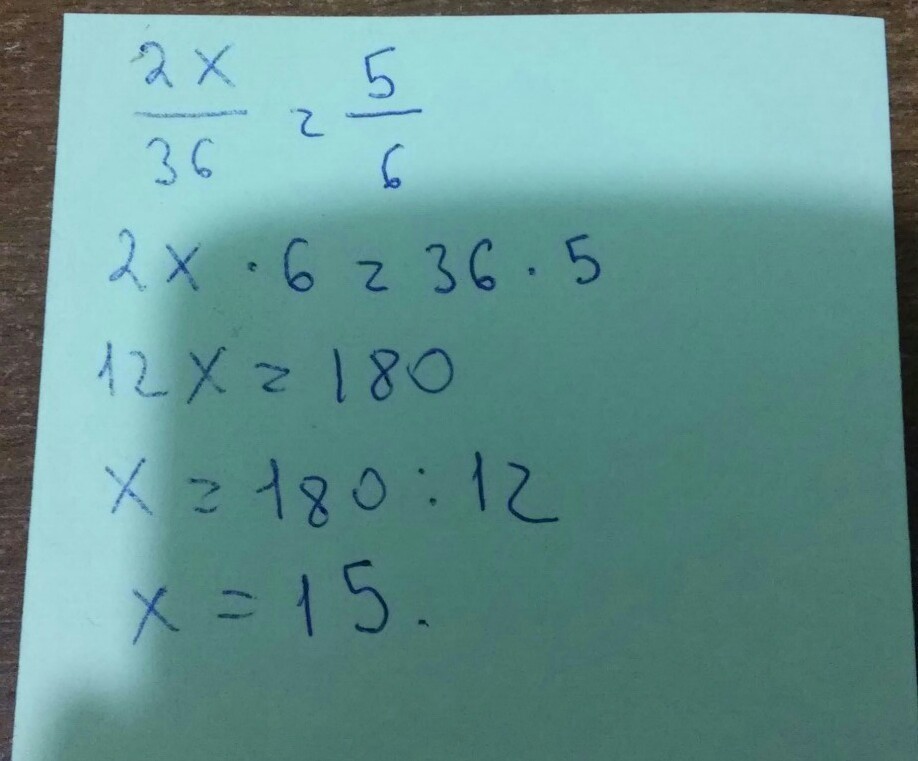 2x/36 = 5/6
2x · 6 = 36 · 5
12x = 180
x = 180 : 12
x = 15.